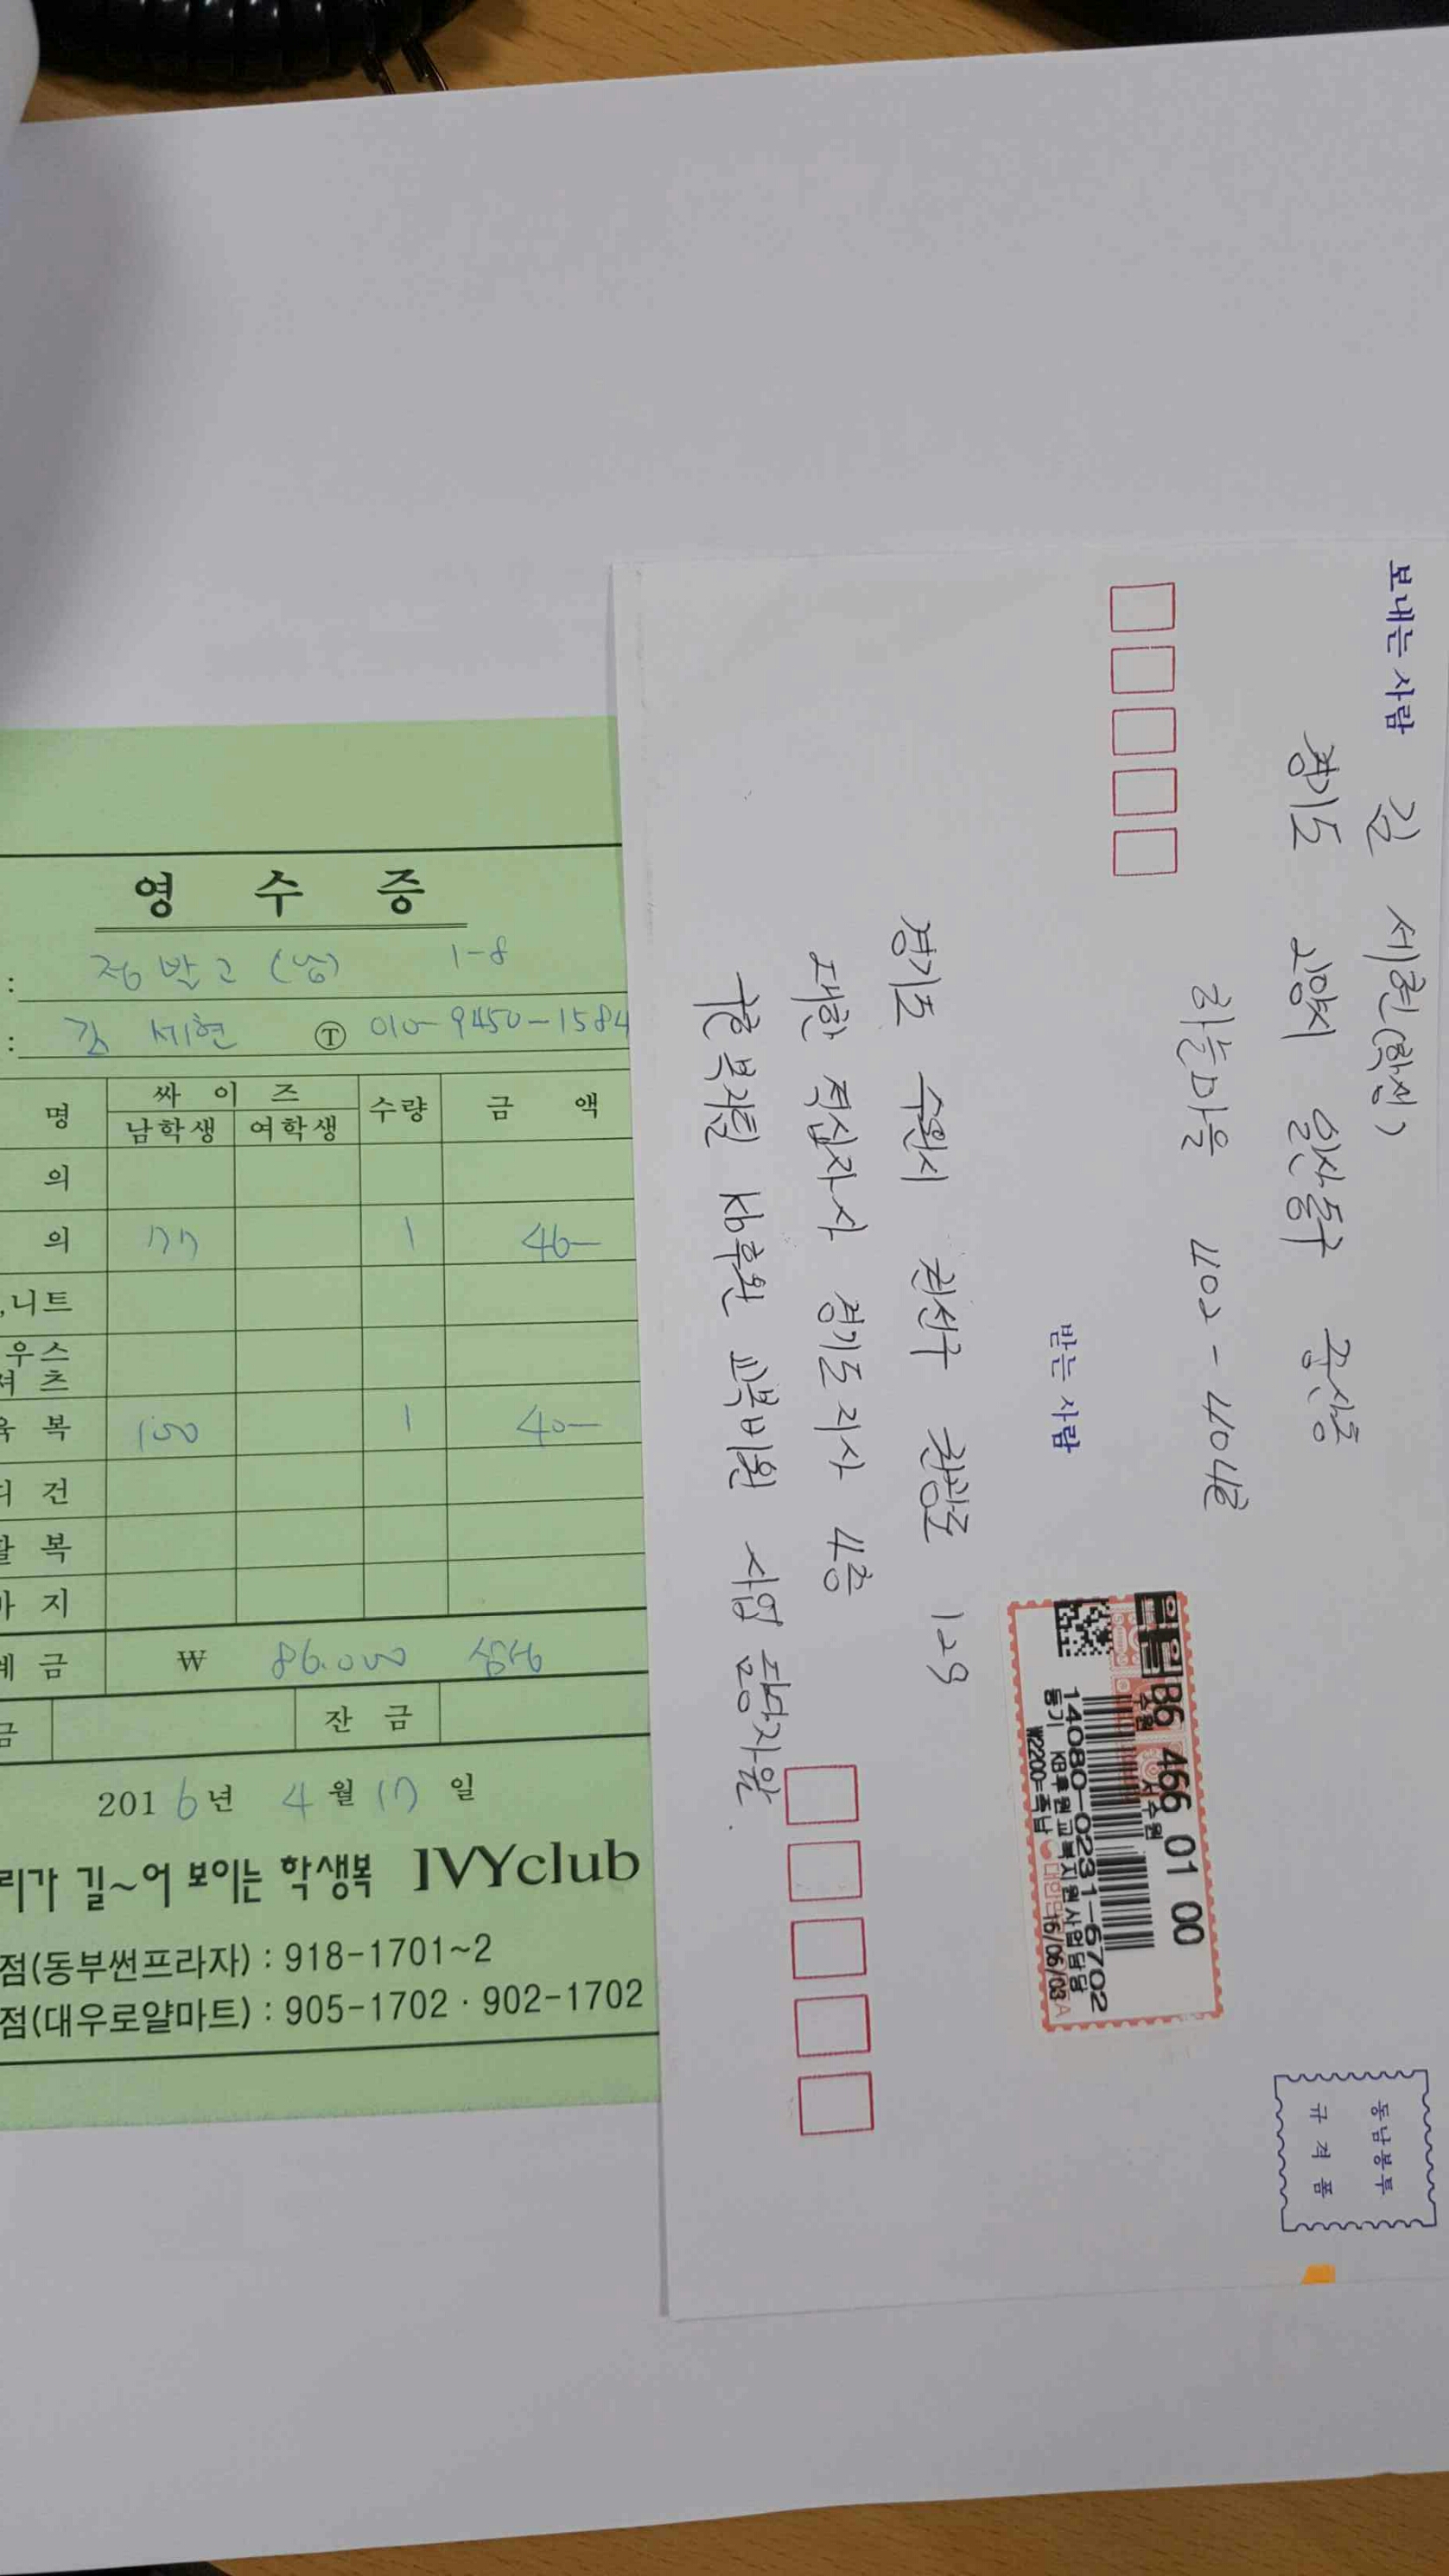 영 수 증
: 정발고 (남) 1-8
: 김 세현 Ⓣ 010-9450-1584
명 싸 이 즈 수량 금 액
남학생 여학생
의
의 77 1 46-
,니트
우스
셔 츠
육 복 100 1 40-
디 건
활 복
바 지
계 금 ₩ 86.000
금 잔 금
2016년 4월 17일
리가 길~어 보이는 학생복 IVYclub
점(동부썬프라자) : 918-1701~2
점(대우로얄마트) : 905-1702 · 902-1702
보내는 사람 김 세현(학생)
경기도 고양시 일산동구 중산동
하늘마을 402-404호
받는 사람
경기도 수원시 권선구 권광로 129
대한 적십자사 경기도지사 4층
구호복지팀 kb후원 교복비원 사업 담당자앞.
B6 466 01 00
수원 서수원
14080-0231-6702
등기 KB후원교복지원사업담당
₩2200=즉납 16/06/03
동남봉투
규 격 품